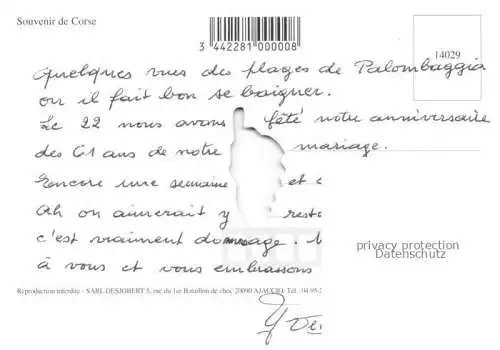 Souvenir de Corse
3 442281 000008
14029
Quelques vues des plages de Palombaggia
ou il fait bon se baigner.
Le 22 nous avons fêté notre anniversaire
des 61 ans de notre mariage.
Encore une semaine et
Ah on aimerait y rest
c'est vraiment dommage.
à vous et vous embrassons
privacy protection
Datenschutz
Reproduction interdite - SARL DESJOBERT 5, rue du 1er Bataillon de choc 20090 AJACCIO Tél. : 04-95-2